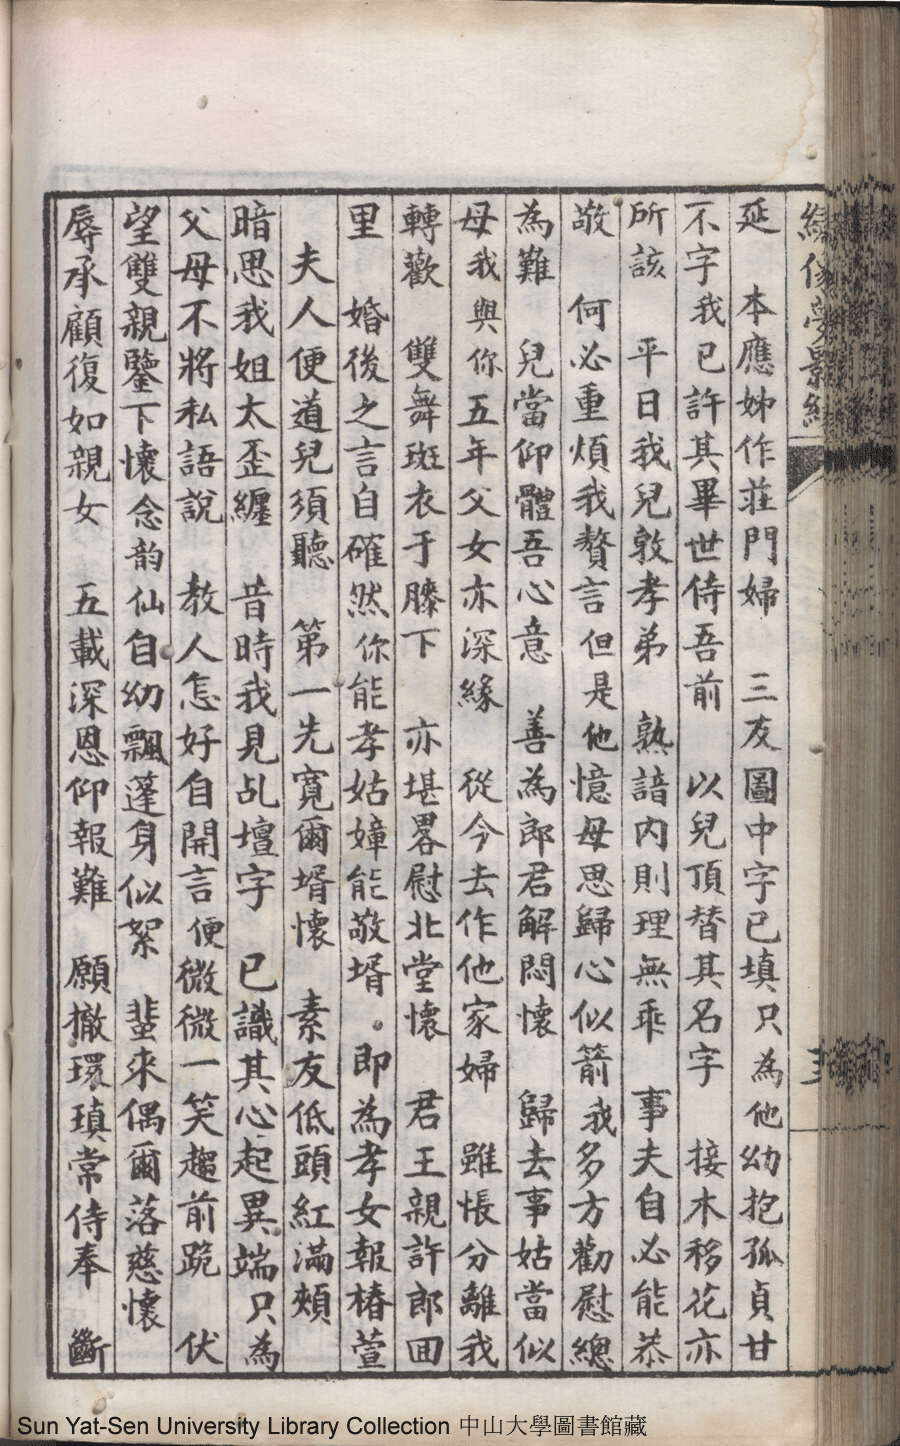 繡像夢影緣
延　本應姊作莊門婦　三友圖中字已填只為他幼抱孤貞甘
不字我已許其畢世侍吾前　以兒頂替其名字　接木移花亦
所該　平日我兒敦孝弟　熟諳內則理無乖　事夫自必能恭
敬　何必重煩我贅言但是他憶母思歸心似箭我多方勸慰總
為難　兒當仰體吾心意　善為郎君解悶懷　歸去事姑當似
母我與你五年父女亦深緣　從今去作他家婦　雖悵分離我
轉歡　雙舞斑衣于膝下　亦堪畧慰北堂懷　君王親許郎回
里　婚後之言自確然你能孝姑嫜能敬壻　即為孝女報椿萱
夫人便道兒須聽　第一先寬爾壻懷　素友低頭紅滿頰
暗思我姐太歪纏　昔時我見乩壇字　已識其心起異端只為
父母不將私語說　教人怎好自開言便微微一笑趨前跪　伏
望雙親鑒下懷念韵仙自幼飄蓬身似絮　蜚來偶爾落慈懷
辱承顧復如親女　五載深恩仰報難　願撤環瑱常侍奉　斷
Sun Yat-Sen University Library Collection 中山大學圖書館藏